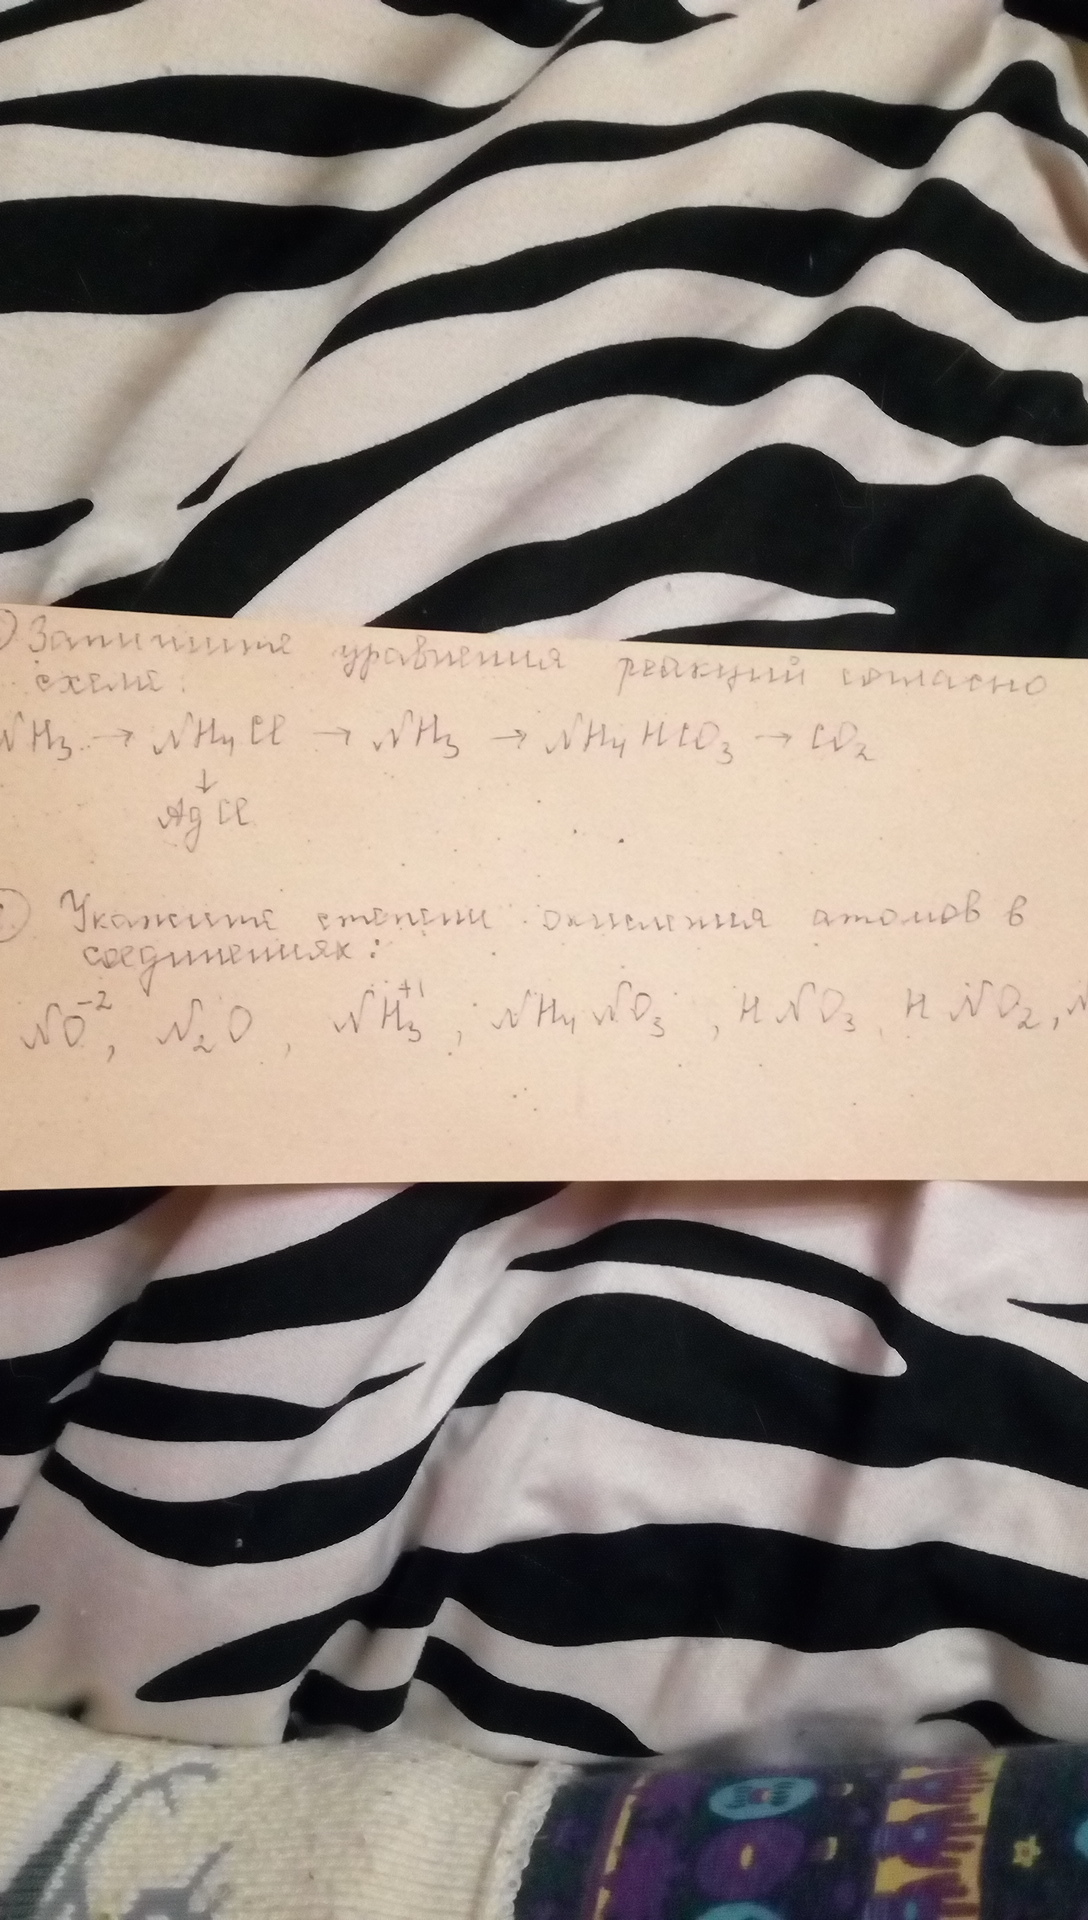 ) Запишите уравнения реакций согласно
схеме:
NH₃ → NH₄Cl → NH₃ → NH₄HCO₃ → CO₂
↓
AgCl
Укажите степени окисления атомов в
соединениях:
NO⁻², N₂O, NH₃⁺¹, NH₄NO₃, HNO₃, HNO₂,